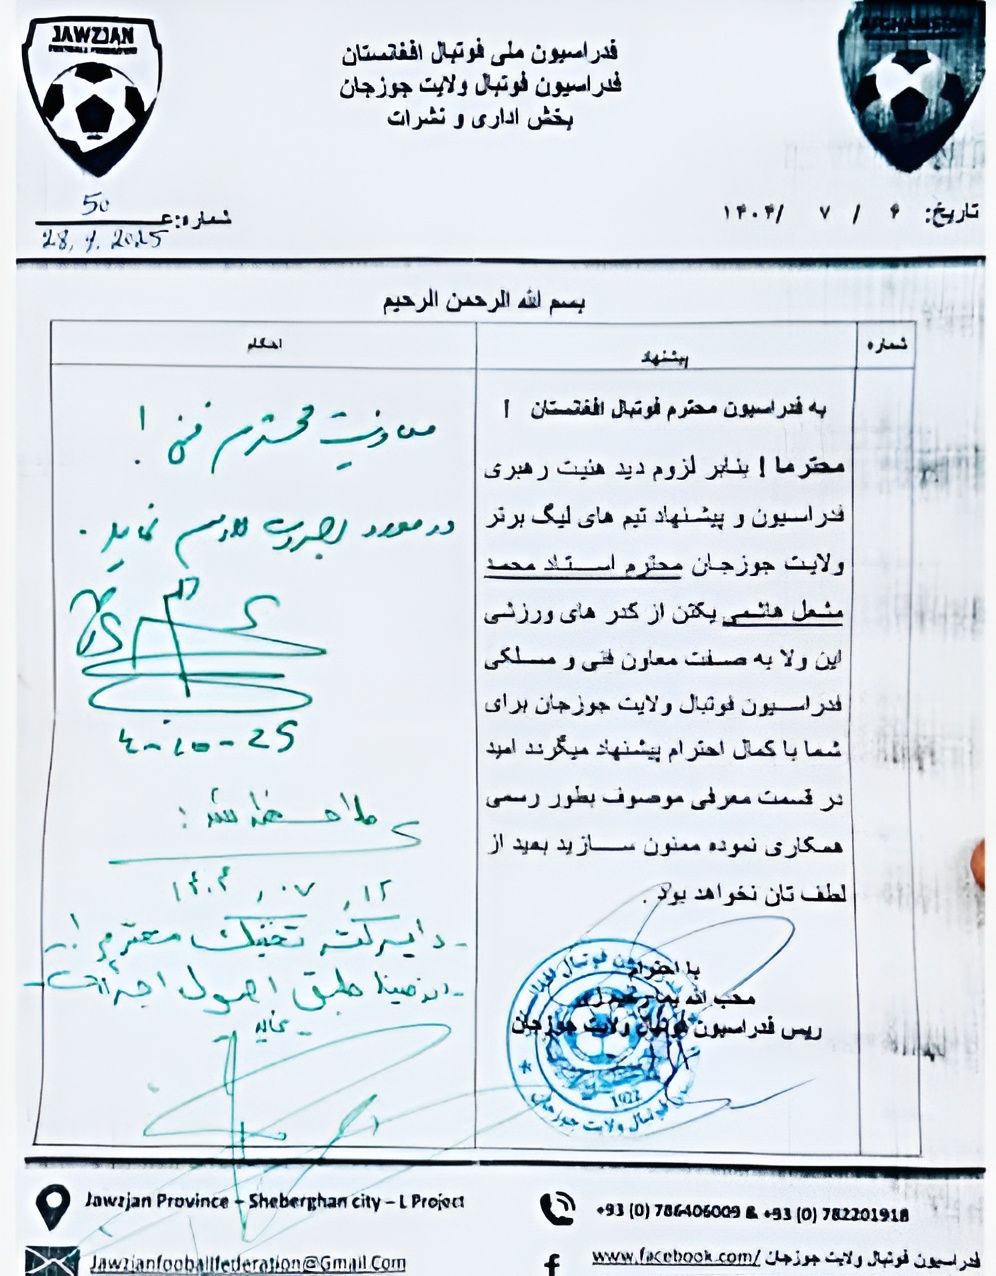 JAWZJAN
فدراسیون ملی فوتبال افغانستان
فدراسیون فوتبال ولایت جوزجان
بخش اداری و نشرات
AFGHANISTAN
شماره:
50
28, 9, 2025
تاریخ: ۶ / ۷ /۱۴۰۴
بسم لله الرحمن الرحیم
شماره
پیشنهاد
احکام
به فدراسیون محترم فوتبال افغانستان !
محترما ! بنابر لزوم دید هئیت رهبری
فدراسیون و پیشنهاد تیم های لیگ برتر
ولایت جوزجان محترم استاد محمد
مشعل هاشمی یکتن از کدر های ورزشی
این ولا به صفت معاون فنی و مسلکی
فدراسیون فوتبال ولایت جوزجان برای
شما با کمال احترام پیشنهاد میگرند امید
در قسمت معرفی موصوف بطور رسمی
همکاری نموده ممنون سازید بعید از
لطف تان نخواهد بود .
با احترام
محب الله
ریس فدراسیون فوتبال ولایت جوزجان
1922
فوتبال ولایت جوزجان
معاونیت محترم فنی !
در مورد اجراات لازم نماید .
4-10-25
ملاحظه شد :
۱۴۰۴, ۰۷, ۱۲
دایرکتر تخنیک محترم !
طبق اصول اجراآت
نماید
Jawzjan Province – Sheberghan city – L Project
+93 (0) 786406009 & +93 (0) 782201918
Jawzjanfooballfederation@Gmail.Com
www.facebook.com/ فدراسیون فوتبال ولایت جوزجان